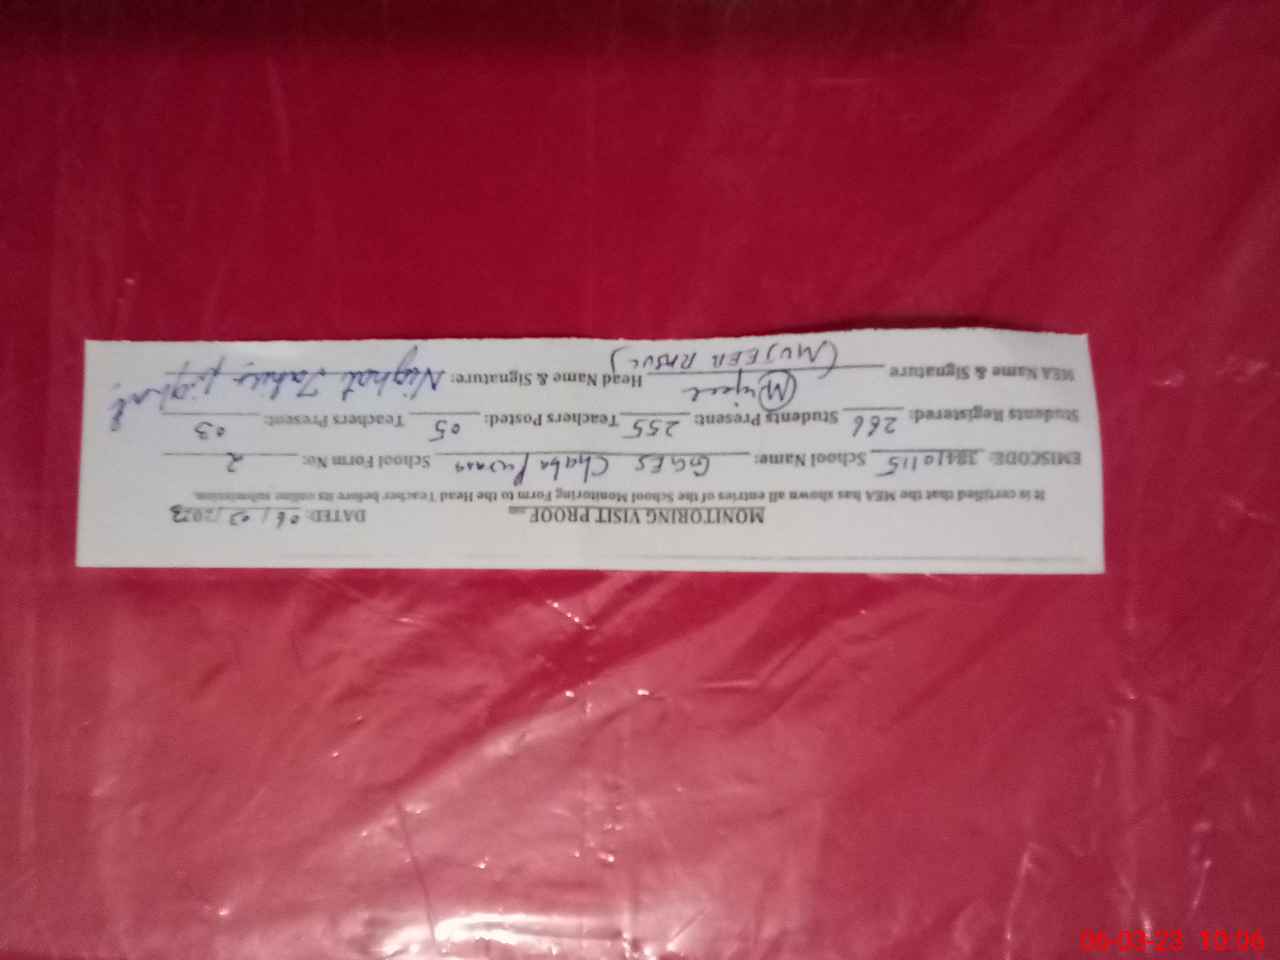 MONITORING VISIT PROOF DATED: 06/03/2023
It is certified that the MEA has shown all entries of the School Monitoring Form to the Head Teacher before its online submission.
EMISCODE: 38410115 School Name: GGES Chaba Purana School Form No: 2
Students Registered: 266 Students Present: 255 Teachers Posted: 05 Teachers Present: 03
MEA Name & Signature Mujeeb Head Name & Signature: Nighat Tahir Nighat
(MUJEEB RASUL)
06-03-23 10:06